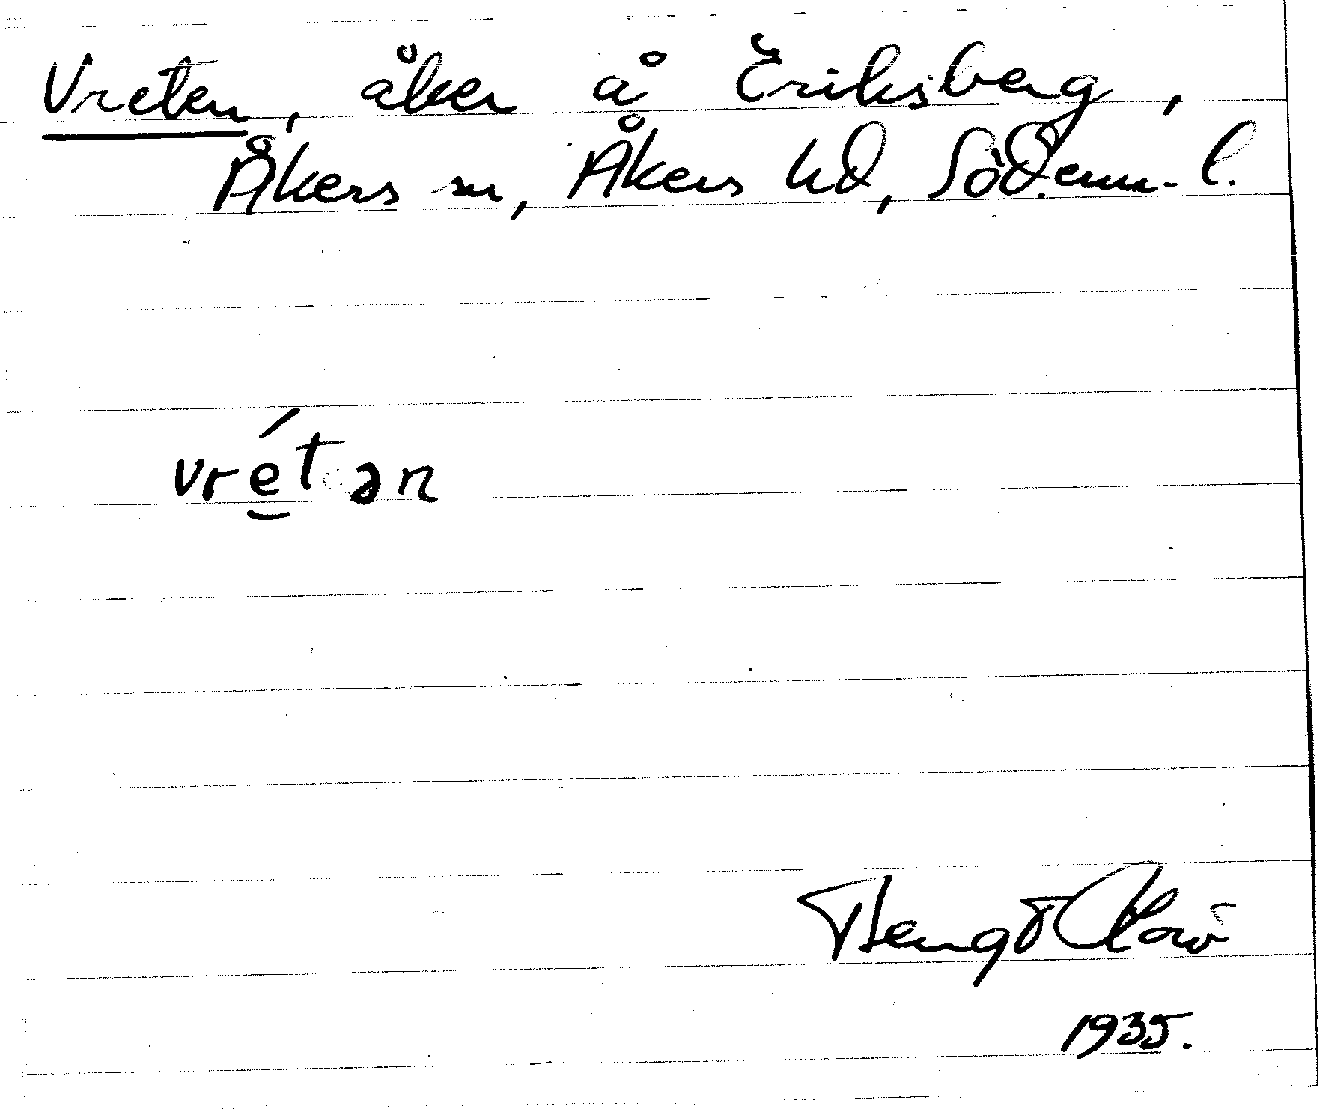 Vreten, åker å Eriksberg,
Åkers sn, Åkers hd, Söderm. l.
vrétən
Bengt
1935.